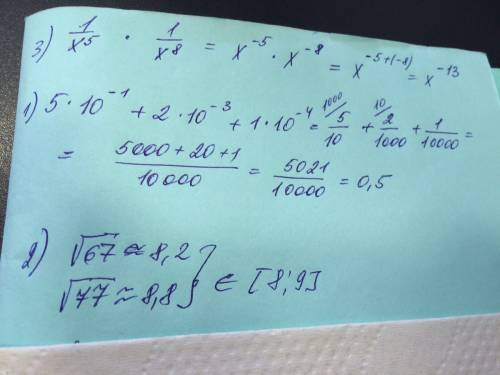 3) 1/x⁵ · 1/x⁸ = x⁻⁵ · x⁻⁸ = x⁻⁵⁺⁽⁻⁸⁾ = x⁻¹³
1) 5·10⁻¹ + 2·10⁻³ + 1·10⁻⁴ = ¹⁰⁰⁰⁄ 5/10 + ¹⁰⁄ 2/1000 + 1/10000 =
= (5000+20+1)/10000 = 5021/10000 = 0,5
2) √67 ≈ 8,2 }
√77 ≈ 8,8 } ∈ [8;9]